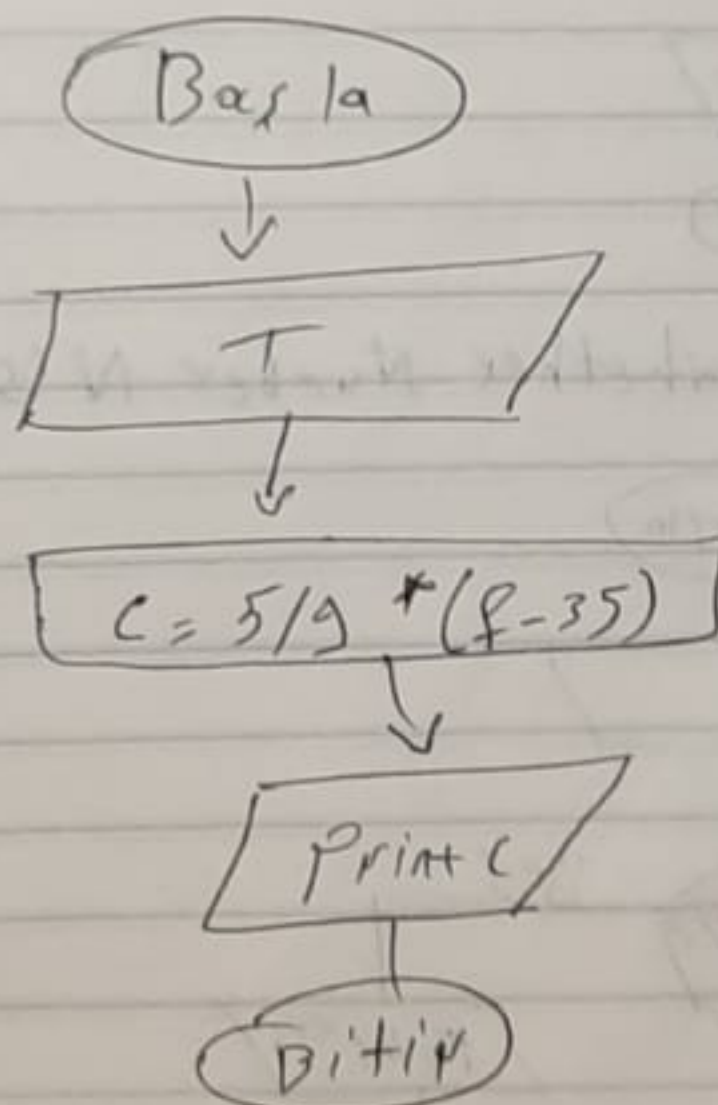 Başla
T
C = 5/9 * (f-35)
Print C
Bitir